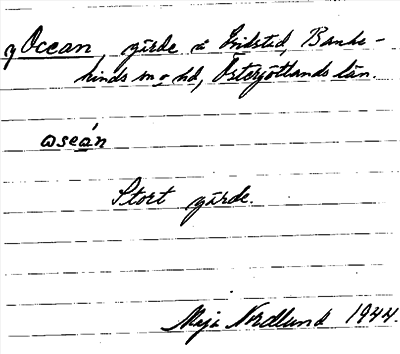 Ocean, gärde i Grebsted, Banke-
kinds sn o hd, Östergötlands län.
oseán
Stort gärde.
Maja Nordlund 1944.